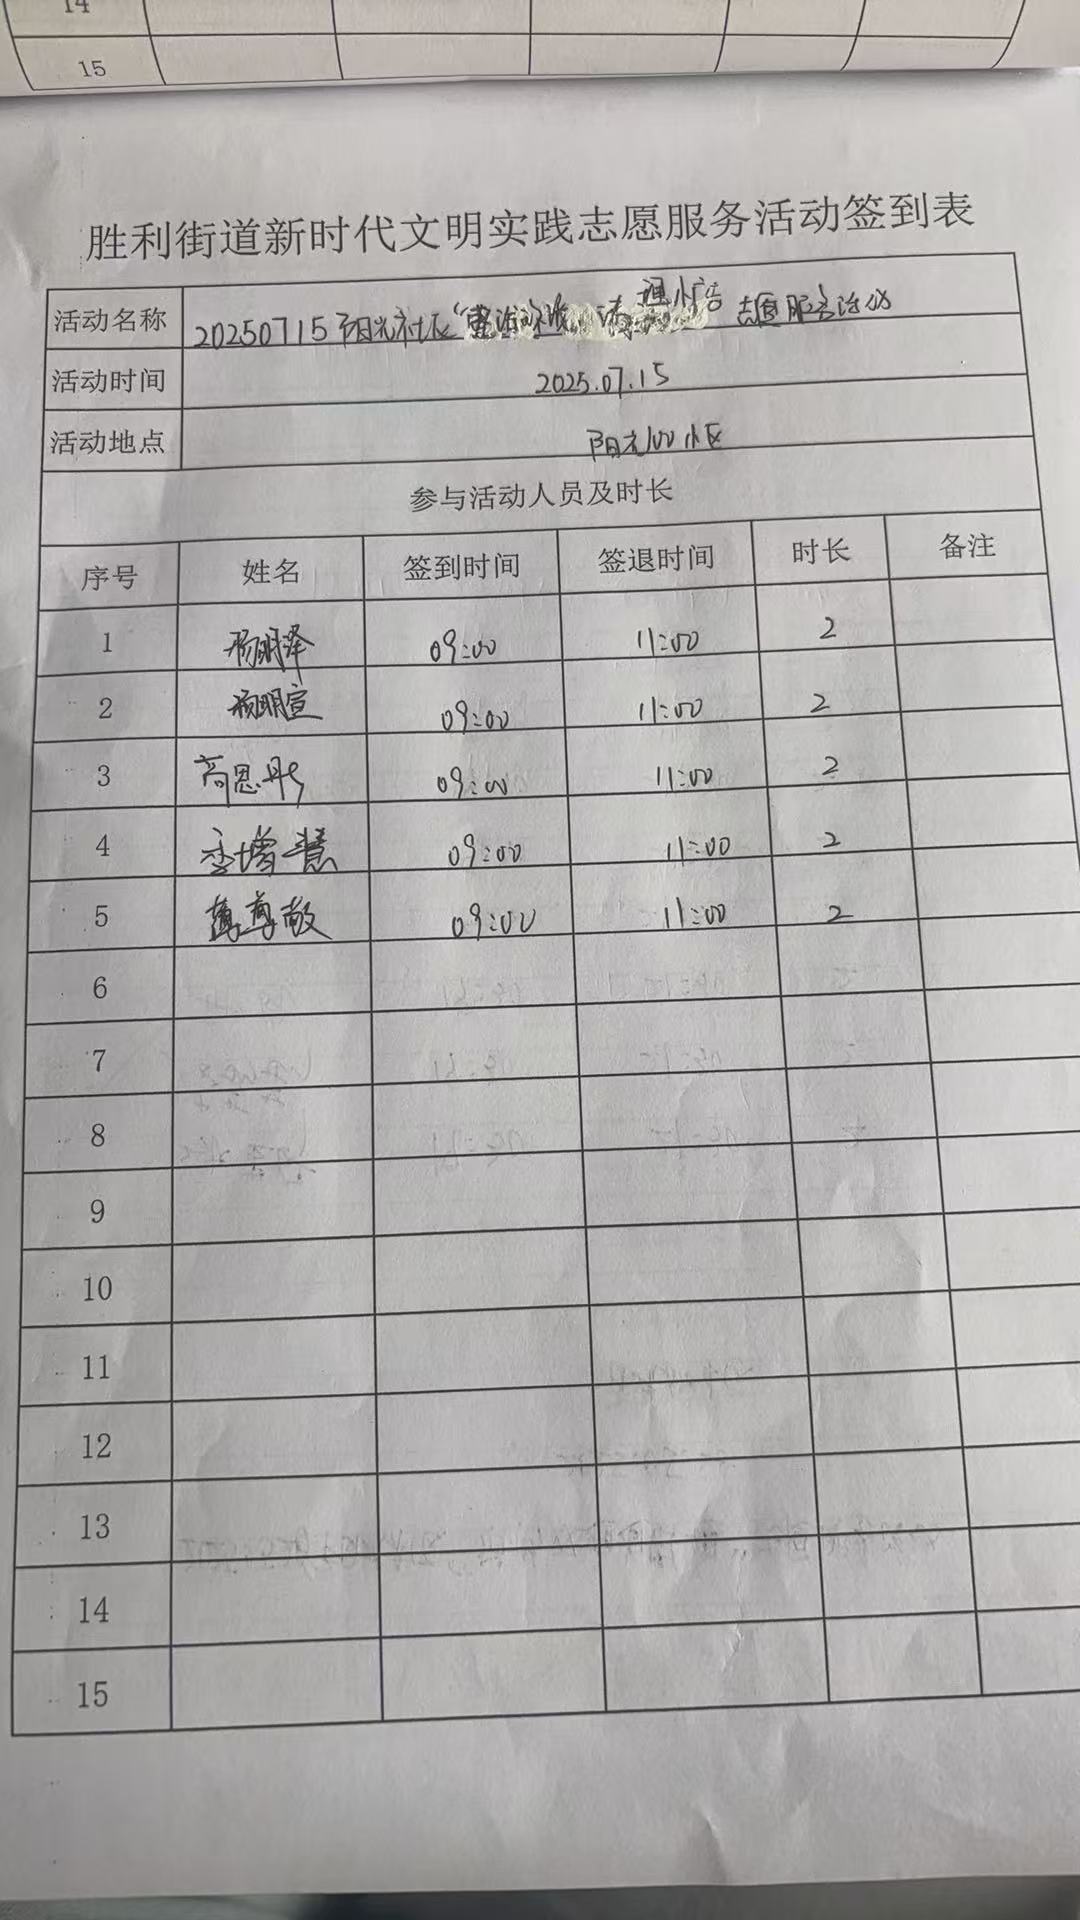 14
15
胜利街道新时代文明实践志愿服务活动签到表
活动名称 20250715阳光社区“整治 清理小广告 志愿服务活动
活动时间 2025.07.15
活动地点 阳光100小区
参与活动人员及时长
序号 姓名 签到时间 签退时间 时长 备注
1 杨明泽 09:00 11:00 2
2 杨明宣 09:00 11:00 2
3 高恩彤 09:00 11:00 2
4 李增慧 09:00 11:00 2
5 尊敬 09:00 11:00 2
6
7
8
9
10
11
12
13
14
15